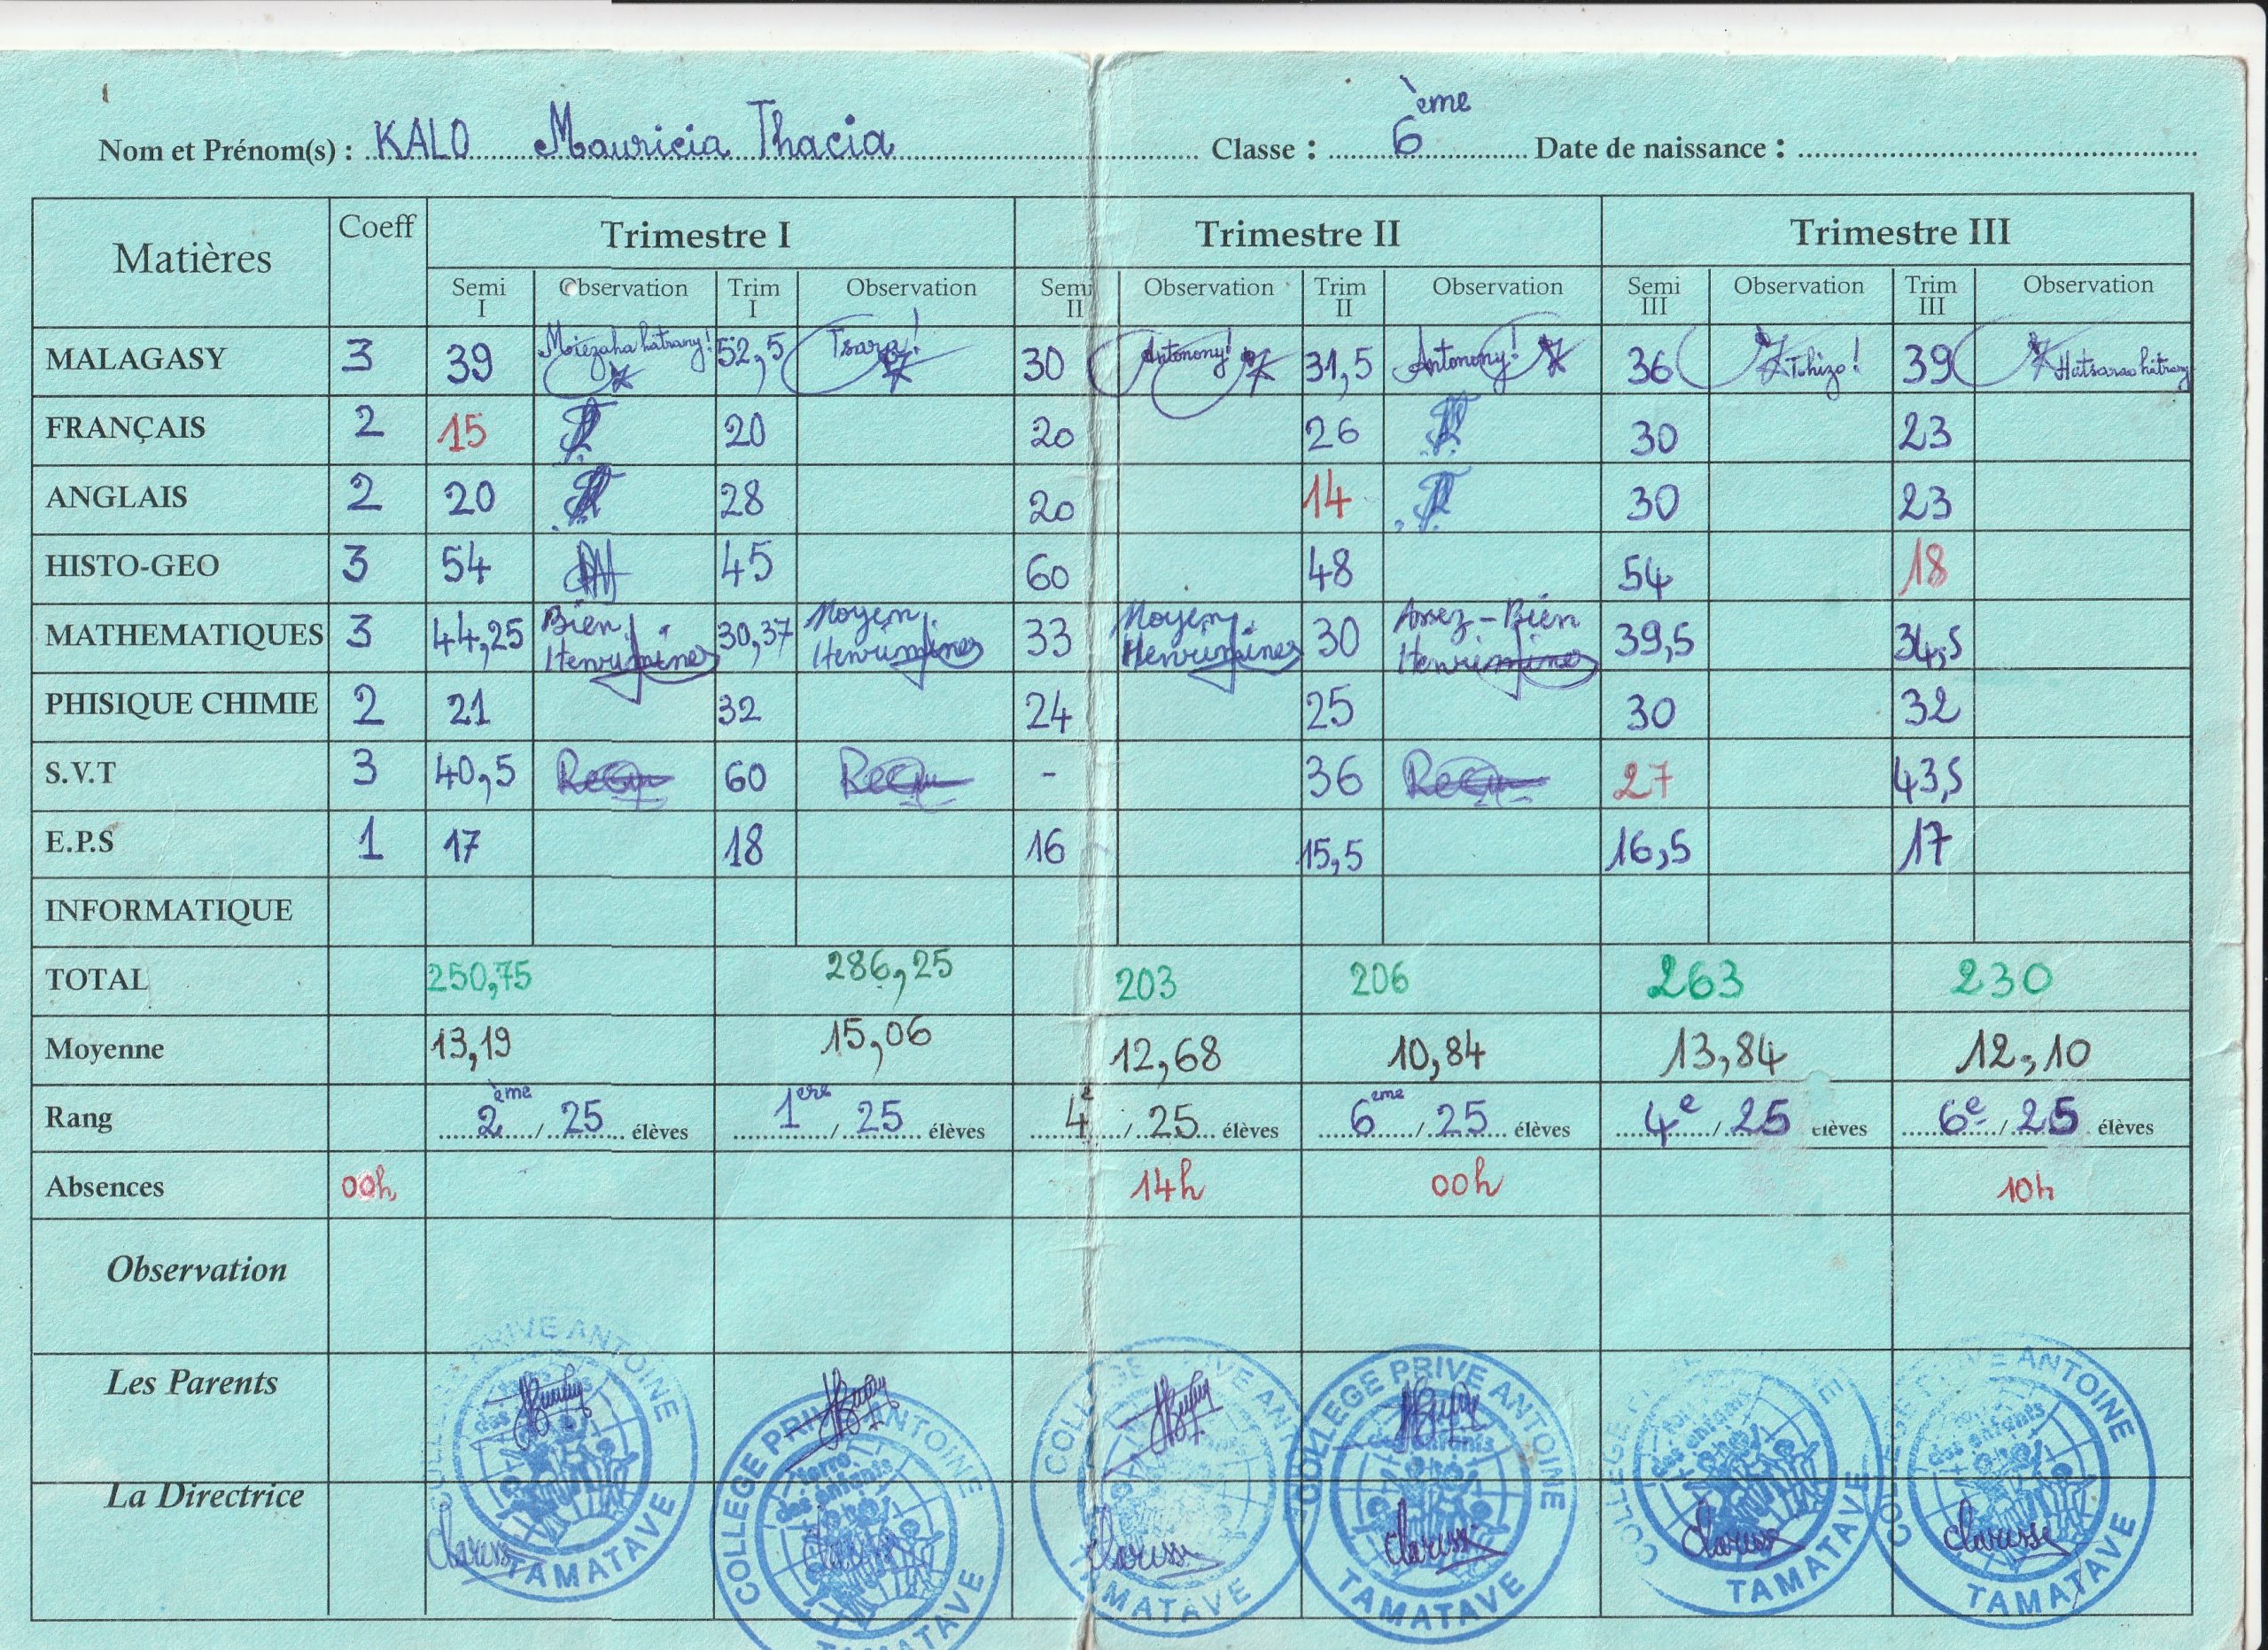 Nom et Prénom(s) : KALO Mauricia Thacia Classe : 6ème Date de naissance :
Matières Coeff Trimestre I Trimestre II Trimestre III
Semi I Observation Trim I Observation Semi II Observation Trim II Observation Semi III Observation Trim III Observation
MALAGASY 3 39 Miezaha hatrany! 52,5 Tsara! 30 Antonony! 31,5 Antonony! 36 Tohizo! 39 Hatsarao hatrany
FRANÇAIS 2 15 20 20 26 30 23
ANGLAIS 2 20 28 20 14 30 23
HISTO-GEO 3 54 45 60 48 54 18
MATHEMATIQUES 3 44,25 Bien 30,37 Moyen 33 Moyen 30 Assez-Bien 39,5 34,5
PHISIQUE CHIMIE 2 21 32 24 25 30 32
S.V.T 3 40,5 60 - 36 27 43,5
E.P.S 1 17 18 16 15,5 16,5 17
INFORMATIQUE
TOTAL 250,75 286,25 203 206 263 230
Moyenne 13,19 15,06 12,68 10,84 13,84 12,10
Rang 2ème / 25 élèves 1ere / 25 élèves 4e / 25 élèves 6eme / 25 élèves 4e / 25 élèves 6e / 25 élèves
Absences 00h 14h 00h 10h
Observation
Les Parents
COLLEGE PRIVE ANTOINE
terre des enfants
La Directrice
Clarisse
TAMATAVE